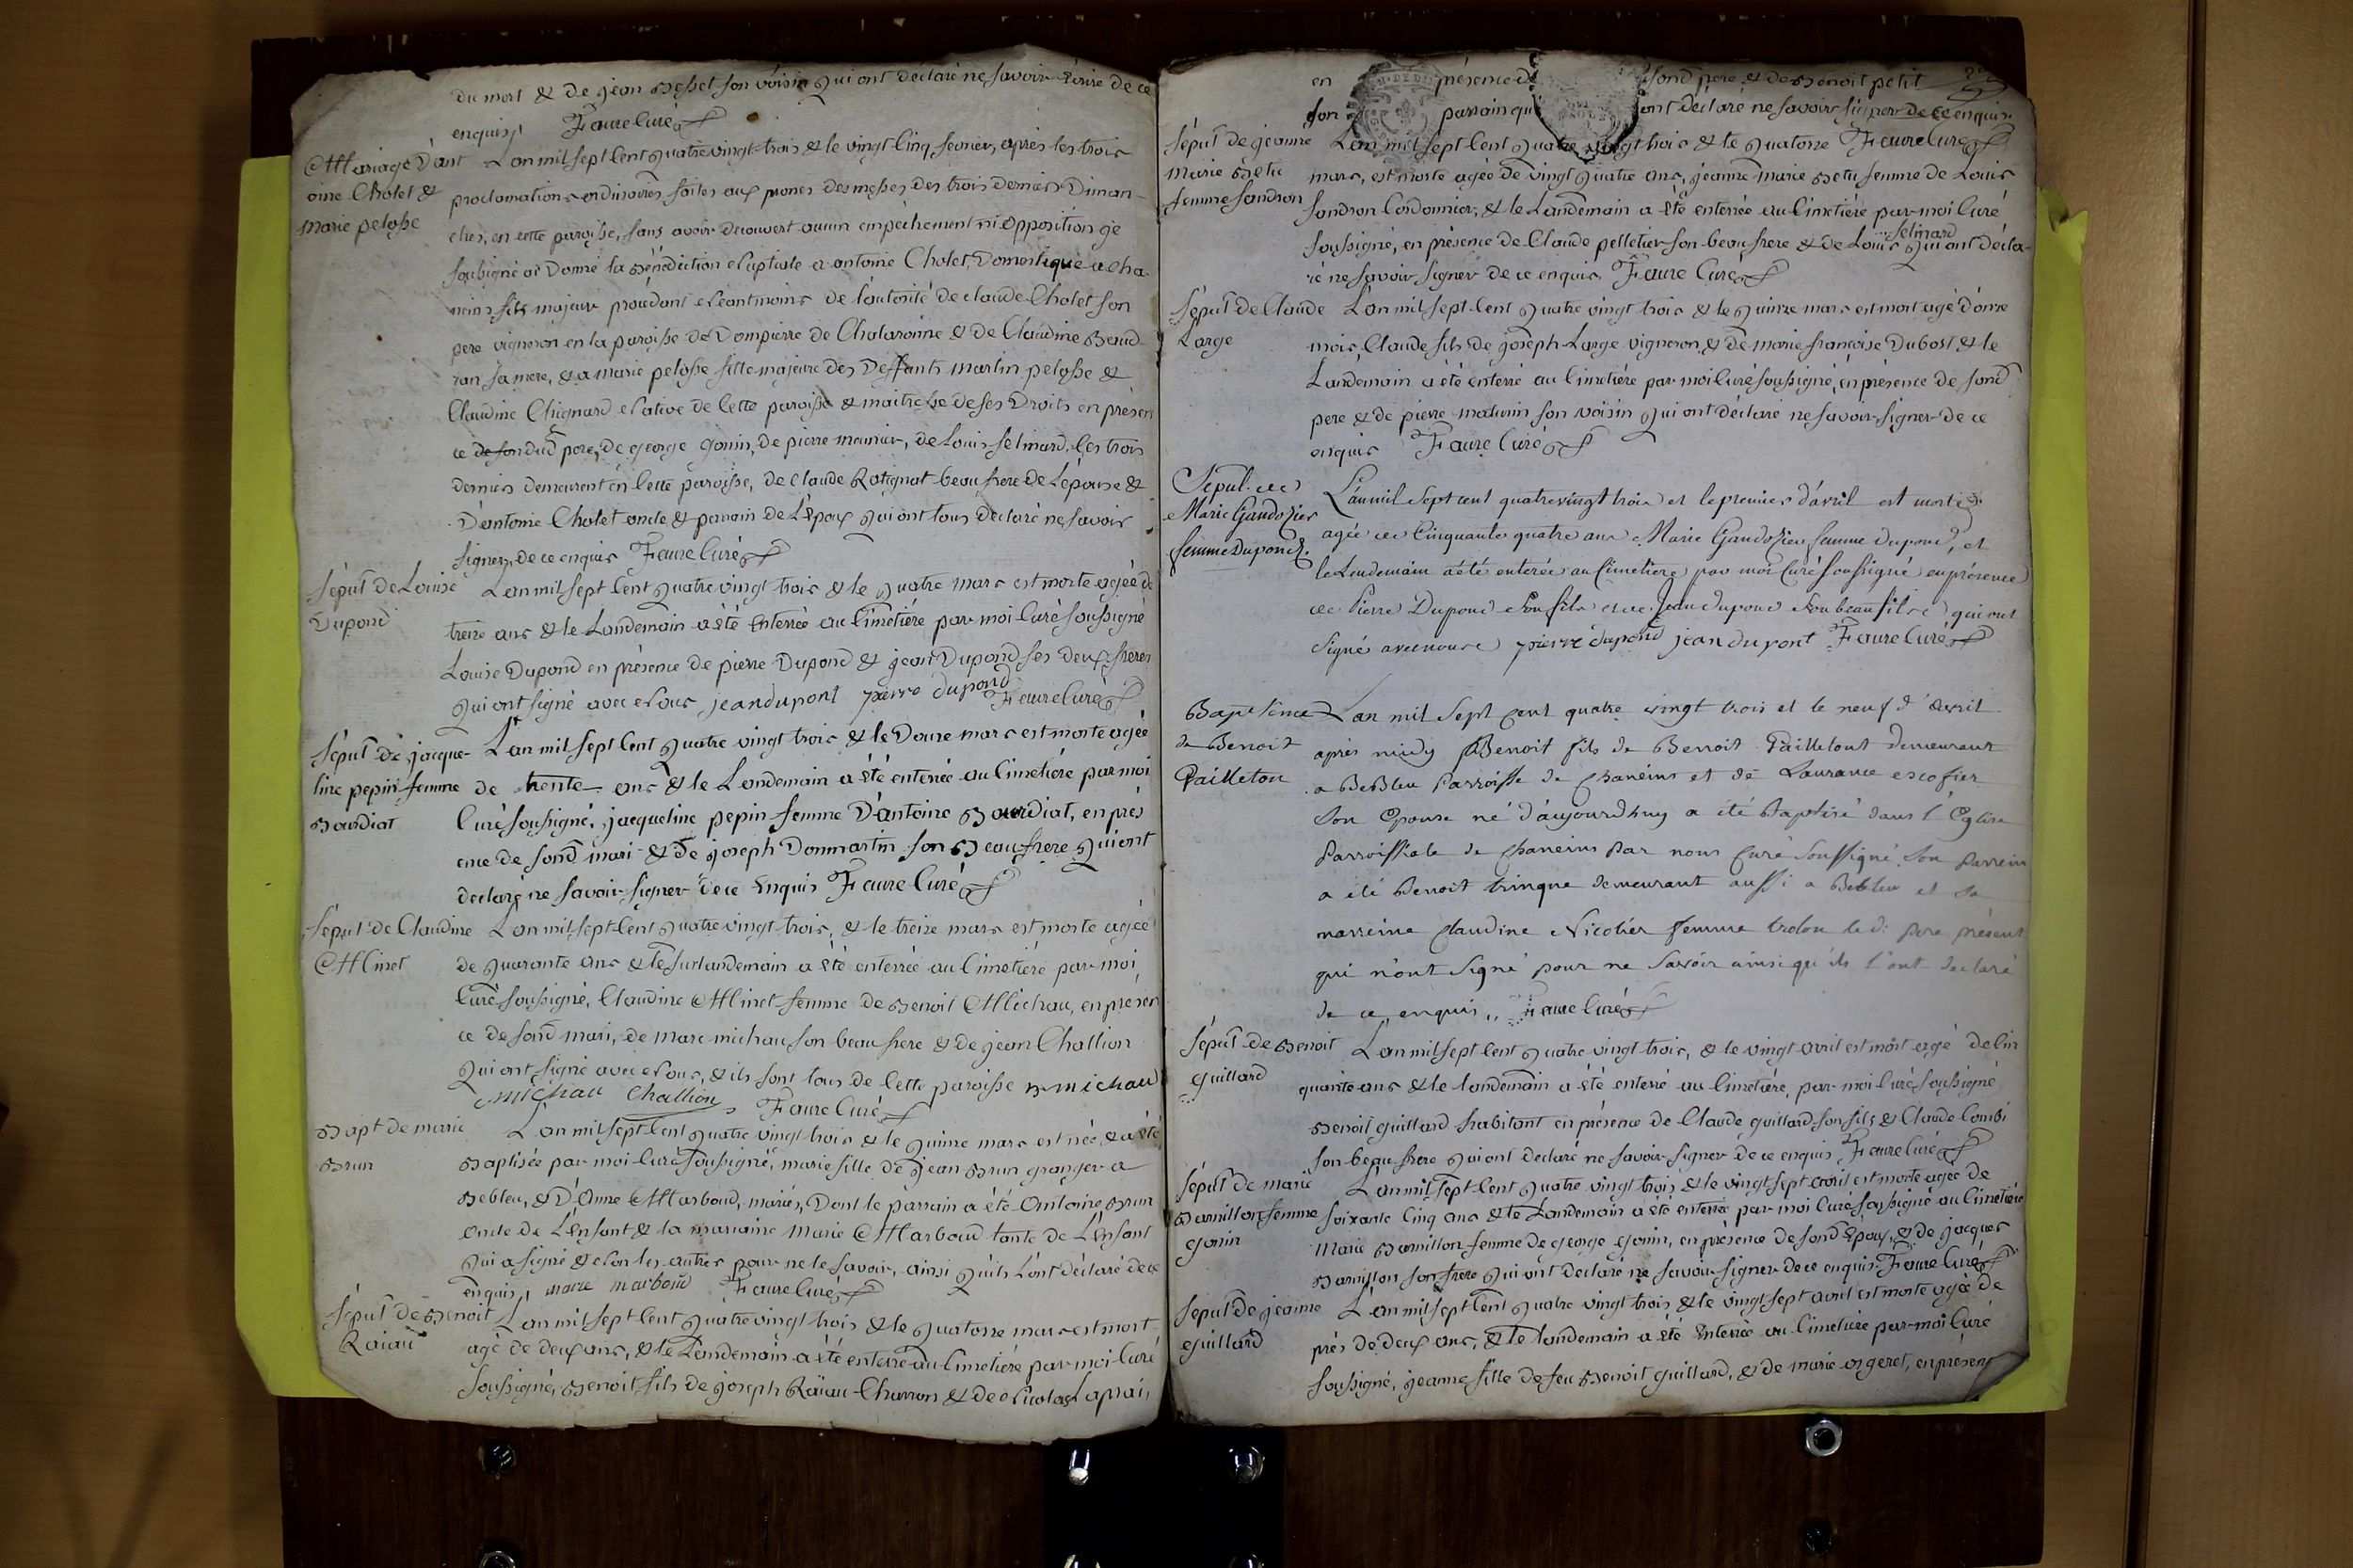 du mort & de jean Besset son voisin qui ont déclaré ne savoir écrire de ce
enquis Faure Curé
Mariage d'ant
oine Cholet &
Marie pelosse
L'an mil sept cent quatre vingt trois & le vingt cinq fevrier, après les trois
proclamations ordinaires faites aux prones des messes des trois derniers Diman-
ches, en cette paroisse, sans avoir decouvert aucun empêchement ni opposition je
soussigné ai Donné la Bénédiction nuptiale a antoine Cholet, Domestique a cha-
neins fils majeur procédant neantmoins de l'autorité de claude Cholet son
pere vigneron en la paroisse de Dompierre de Chalaronne & de Claudine Beaud
ran sa mere, & a marie pelosse fille majeure des Deffunts martin pelosse &
Claudine Chignard native de Cette paroisse & maitresse de ses Droits en présen
ce de son dud pere, de george Gonin, de pierre meunier, de Louis felinard, les trois
derniers demeurent en Cette paroisse, de Claude Ratignat beau frere de L'epouse &
D'antoine Cholet oncle & parrain de L'époux qui ont tous déclaré ne savoir
signer, de ce enquis Faure Curé
sépult de Louise
Dupond
L'an mil sept Cent quatre vingt trois & le quatre mars est morte agée de
treize ans & le Landemain a été enterrée au Cimetiére par moi Curé soussigné
Louise Dupond en présence de pierre Dupond & jean Dupond ses deux freres
qui ont signé avec Nous jean dupont pierre dupond Faure Curé
sépult de jacque-
line pepin femme
Bourdiat
L'an mil sept Cent quatre vingt trois & le Douze mars est morte agée
de trente ans & le Landemain a été enterrée au Cimetiére par moi
Curé soussigné, jacqueline pepin femme D'antoine Bourdiat, en prés
ence de sond mari & de joseph Donmartin son Beaufrere qui ont
declaré ne savoir signer de ce Enquis Faure Curé
sépult de Claudine
Minet
L'an mil sept Cent quatre vingt trois, & le treize mars est morte agée
de quarante ans & le surlandemain a été enterrée au Cimetiére par moi
Curé soussigné, Claudine Minet femme de Benoit Michau, en présen
ce de sond mari, de marc michau son beau frere & de jean Challion
qui ont signé avec Nous, & ils sont tous de Cette paroisse B michau
michau Challion Faure Curé
Bapt de marie
Brun
L'an mil sept Cent quatre vingt trois & le quinze mars est née, & a été
Baptisée par moi Curé soussigné, marie fille de jean Brun granger a
Bebleu, & D'Anne Marboud, mariés, Dont le parrain a été Antoine Brun
oncle de L'enfant & la marraine Marie Marboud tante de L'enfant
qui a signé & Non les autres pour ne le savoir, ainsi qu'ils L'ont déclaré de ce
enquis, marie marboud Faure Curé
sépult de Benoit
Raiau
L'an mil sept Cent quatre vingt trois & le quatorze mars est mort
agé de deux ans, & le Landemain a été enterré au Cimetiére par moi Curé
soussigné, Benoit fils de joseph Raïau Charron & de Nicolas Laprai,
en présence d sond pere & de Benoit petit
son parrain qui ont déclaré ne savoir signer de ce enquis
Faure Curé
sépult de jeanne
marie Betu
femme sandron
L'an mil sept Cent quatre vingt trois & le quatorze
mars, est morte agée de vingt quatre ans, jeanne marie Betu femme de Louis
sandron Cordonnier, & le Landemain a été enterrée au Cimetiére par moi Curé
soussigné, en présence de Claude pelletier son beau frere & de Louis felinard qui ont décla-
ré ne savoir signer de ce enquis Faure Curé
sépult de Claude
Large
L'an mil sept Cent quatre vingt trois & le quinze mars est mort agé d'onze
mois, Claude fils de joseph Large vigneron & de marie françoise Dubost & le
Landemain a été enterré au Cimetiére par moi Curé soussigné, en présence de sond
pere & de pierre maturin son voisin qui ont déclaré ne savoir signer de ce
enquis Faure Curé
Sepul. de
Marie Gandozier
femme Dupond.
L'an mil sept cent quatrevingt trois et le premier d'avril est morte
agée de Cinquante quatre ans Marie Gandozier femme dupond, et
le Lendemain a été enterée au Cimetiere par moi Curé Soussigné en présence
de Pierre Dupond Son fils et de Jean dupond Son beau fils qui ont
Signés avec nous pierre dupond jean dupont Faure Curé
Baptême
de Benoit
Pailleton
L'an mil sept cent quatre vingt trois et le neuf d'avril
après midy Benoit fils de Benoit Pailletout demeurant
a BeBleu Parroisse de Chaneins et de Laurance escofier
Son Epouse né d'aujourdhuy a été Baptisé dans l'Eglise
Parroissiale de Chaneins Par nous Curé Soussigné. Son Parrein
a été Benoit trinque demeurant aussi a Bebleu et sa
marreine Claudine Nicolier femme trolon le d: Pere présent
qui n'ont Signé pour ne Savoir ainsi qu'ils l'ont declaré
de ce enquis,, Faure Curé
sépult de Benoit
Guillard
L'an mil sept Cent quatre vingt trois, & le vingt avril est mort agé de Cin
quante ans & le landemain a été enterré au Cimetiére, par moi Curé soussigné
Benoit guillard habitant en présence de Claude guillard son fils & Claude Combi
son beau frere qui ont declaré ne savoir signer de ce enquis Faure Curé
sépult de marie
Barnillon femme
Gonin
L'an mil sept Cent quatre vingt trois & le vingt sept avril est morte agée de
soixante Cinq ans & le Landemain a été enterrée par moi Curé soussigné au Cimetiére
Marie Barnillon femme de george Gonin, en présence de sond Epoux, & de jacques
Barnillon son frere qui ont declaré ne savoir signer de ce enquis Faure Curé
sépult de jeanne
Guillard
L'an mil sept Cent quatre vingt trois & le vingt sept avril est morte agée de
près de deux ans, & le landemain a été Enterrée au Cimetiére par moi Curé
soussigné, jeanne fille de feu Benoit guillard, & de marie orgeret, en présen